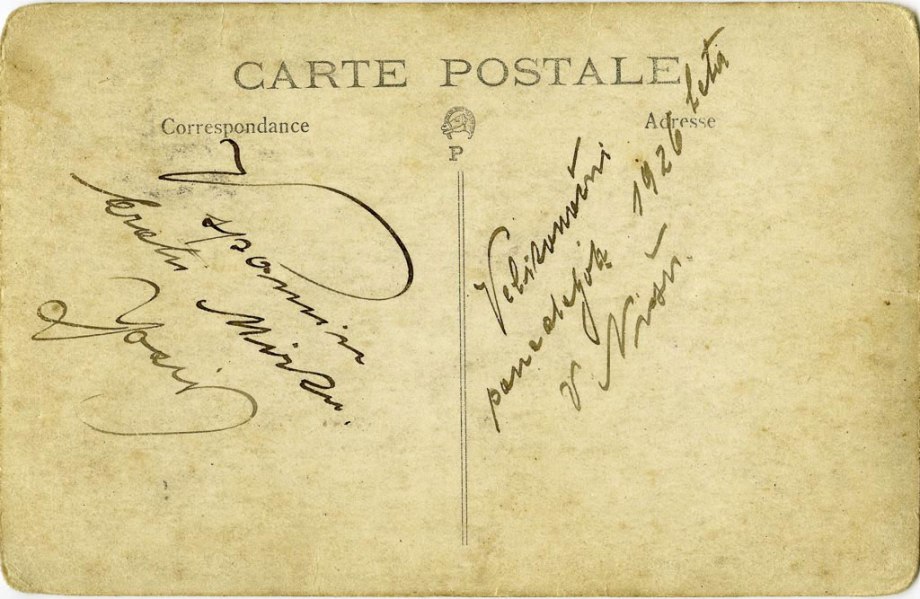 CARTE POSTALE
Correspondance
Adresse
P
V spomin
bratu Mirku
Josip
Velikonočni
ponedeljek 1926 leta
v Nišu.